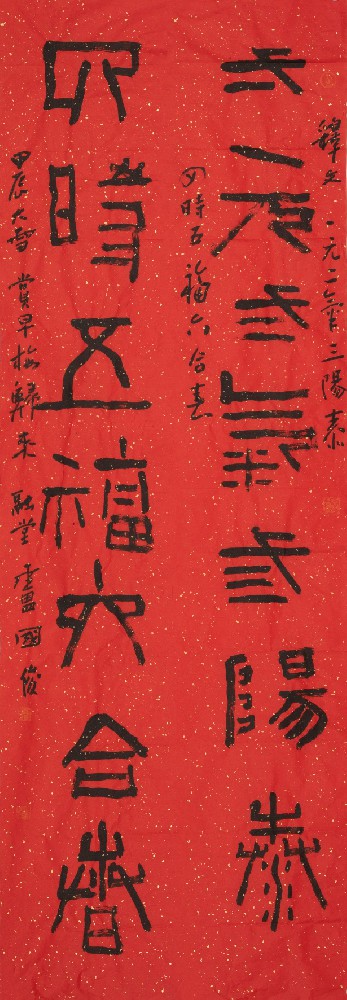 釋文 一元二氣三陽泰
一元二氣三陽泰
四時五福六合春
四時五福六合春
甲辰大雪 賞早梅歸來 融堂 盧國俊